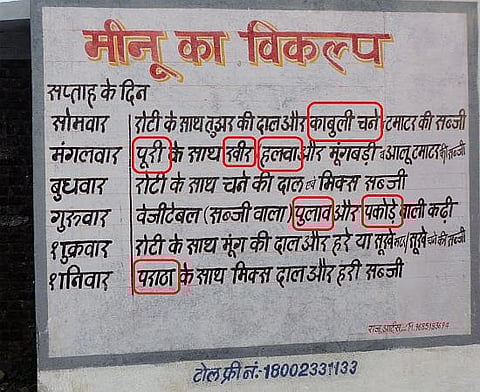 मीनू का विकल्प
सप्ताह के दिन
सोमवार रोटी के साथ तुअर की दाल और काबुली चने टमाटर की सब्जी
मंगलवार पूरी के साथ खीर हलवा और मूंगबड़ी व आलू टमाटर की सब्जी
बुधवार रोटी के साथ चने की दाल एवं मिक्स सब्जी
गुरुवार वेजीटेबल (सब्जी वाला) पुलाव और पकोड़े वाली कढ़ी
शुक्रवार रोटी के साथ मूंग की दाल और हरे या सूखे मटर/सूखे चने की सब्जी
शनिवार पराठा के साथ मिक्स दाल और हरी सब्जी
राज आर्टस
टोल फ्री नं:-18002331133